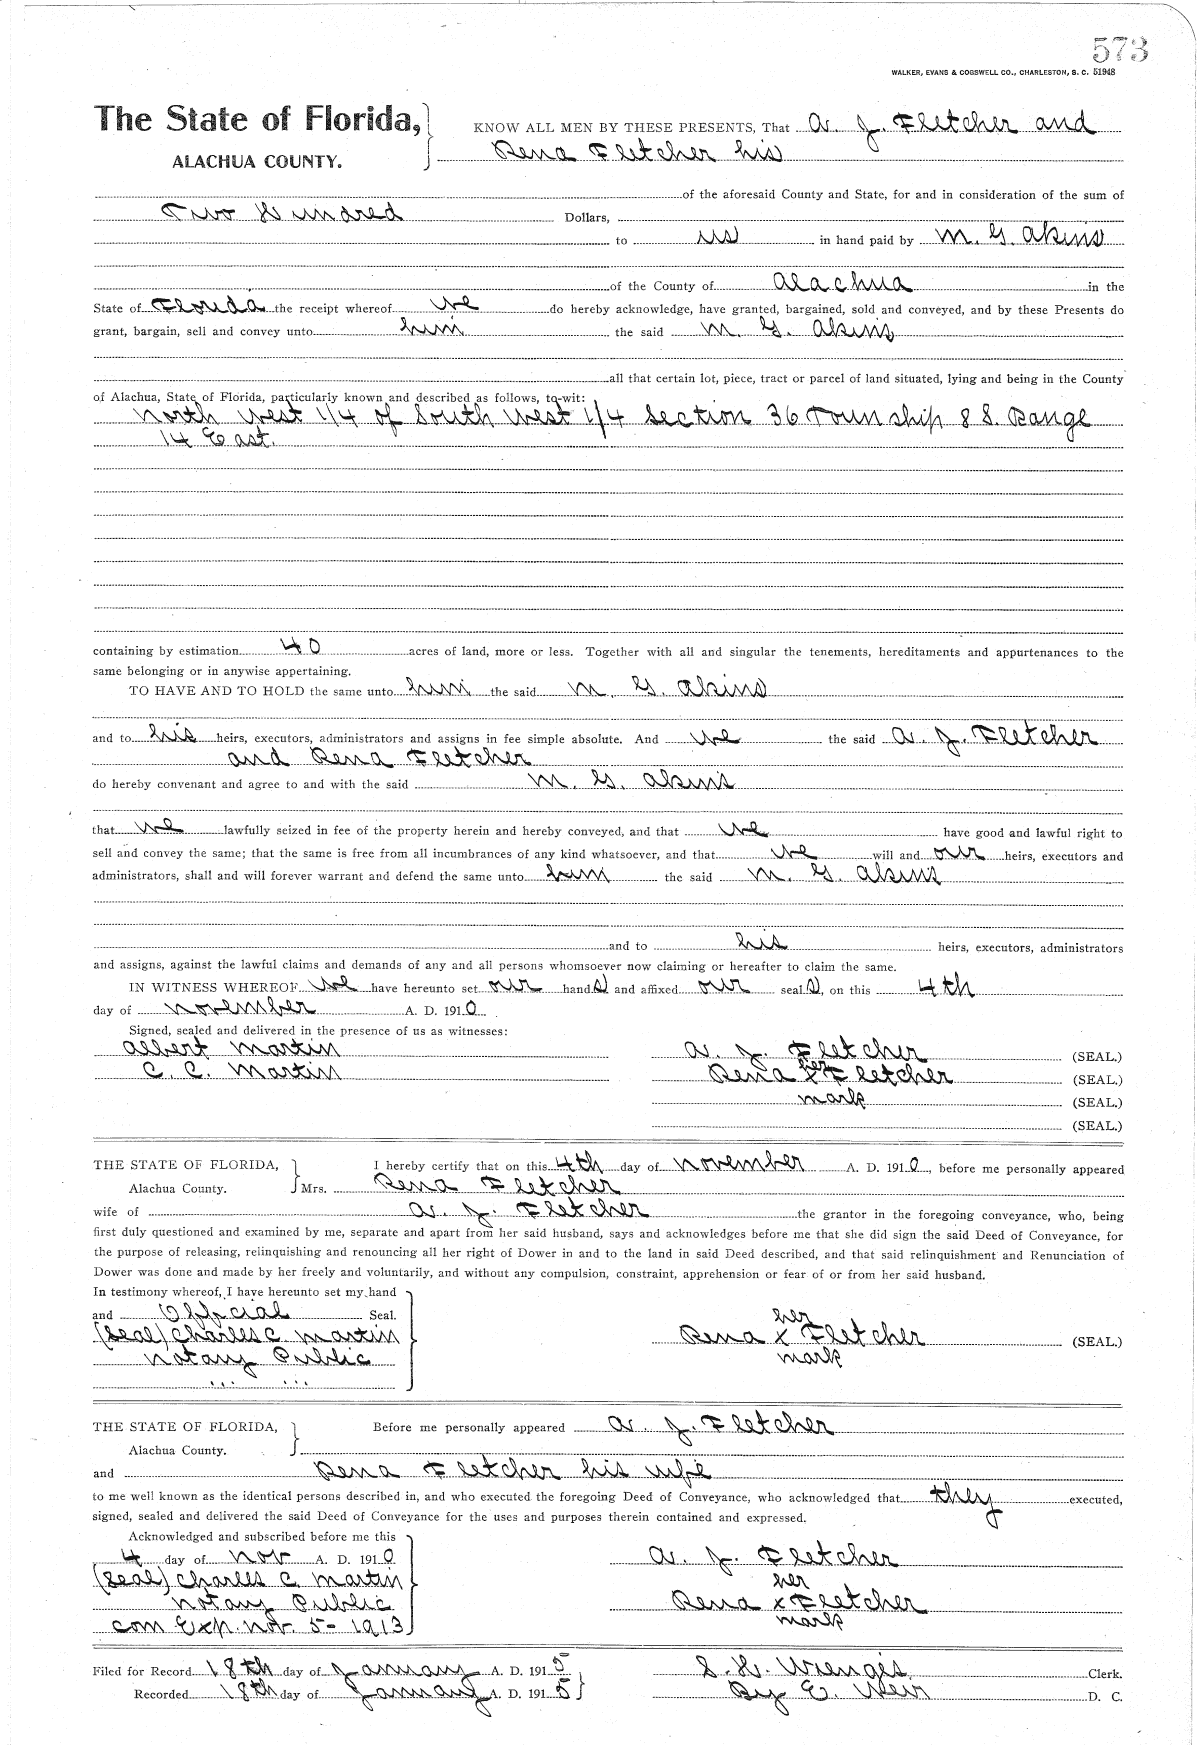 573
WALKER, EVANS & COGSWELL CO., CHARLESTON, S. C. 51948
The State of Florida, KNOW ALL MEN BY THESE PRESENTS, That A. J. Fletcher and
ALACHUA COUNTY. Rena Fletcher his
of the aforesaid County and State, for and in consideration of the sum of
Two Hundred Dollars,
to us in hand paid by M. G. Akins
of the County of Alachua in the
State of Florida the receipt whereof we do hereby acknowledge, have granted, bargained, sold and conveyed, and by these Presents do
grant, bargain, sell and convey unto him the said M. G. Akins
all that certain lot, piece, tract or parcel of land situated, lying and being in the County
of Alachua, State of Florida, particularly known and described as follows, to-wit:
North West 1/4 of South West 1/4 Section 36 Township 8 S. Range
14 East.
containing by estimation 40 acres of land, more or less. Together with all and singular the tenements, hereditaments and appurtenances to the
same belonging or in anywise appertaining.
TO HAVE AND TO HOLD the same unto him the said M. G. Akins
and to his heirs, executors, administrators and assigns in fee simple absolute. And we the said A. J. Fletcher
and Rena Fletcher
do hereby convenant and agree to and with the said M. G. Akins
that we lawfully seized in fee of the property herein and hereby conveyed, and that we have good and lawful right to
sell and convey the same; that the same is free from all incumbrances of any kind whatsoever, and that we will and our heirs, executors and
administrators, shall and will forever warrant and defend the same unto him the said M. G. Akins
and to his heirs, executors, administrators
and assigns, against the lawful claims and demands of any and all persons whomsoever now claiming or hereafter to claim the same.
IN WITNESS WHEREOF we have hereunto set our hands and affixed our seals, on this 4th
day of November A. D. 1910.
Signed, sealed and delivered in the presence of us as witnesses:
Albert Martin A. J. Fletcher (SEAL.)
her
C. C. Martin Rena x Fletcher (SEAL.)
mark (SEAL.)
(SEAL.)
THE STATE OF FLORIDA, I hereby certify that on this 4th day of November A. D. 1910, before me personally appeared
Alachua County. Mrs. Rena Fletcher
wife of A. J. Fletcher the grantor in the foregoing conveyance, who, being
first duly questioned and examined by me, separate and apart from her said husband, says and acknowledges before me that she did sign the said Deed of Conveyance, for
the purpose of releasing, relinquishing and renouncing all her right of Dower in and to the land in said Deed described, and that said relinquishment and Renunciation of
Dower was done and made by her freely and voluntarily, and without any compulsion, constraint, apprehension or fear of or from her said husband.
In testimony whereof, I have hereunto set my hand
and Official Seal. her
(Seal) Charles C. Martin Rena x Fletcher (SEAL.)
Notary Public mark
THE STATE OF FLORIDA, Before me personally appeared A. J. Fletcher
Alachua County.
and Rena Fletcher his wife
to me well known as the identical persons described in, and who executed the foregoing Deed of Conveyance, who acknowledged that they executed,
signed, sealed and delivered the said Deed of Conveyance for the uses and purposes therein contained and expressed.
Acknowledged and subscribed before me this
4 day of Nov A. D. 1910 A. J. Fletcher
(Seal) Charles C. Martin her
Notary Public Rena x Fletcher
Com Exp. Nov. 5-1913 mark
Filed for Record 18th day of January A. D. 1915 S. H. Wienges Clerk.
Recorded 18th day of January A. D. 1915 By E. Weir D. C.